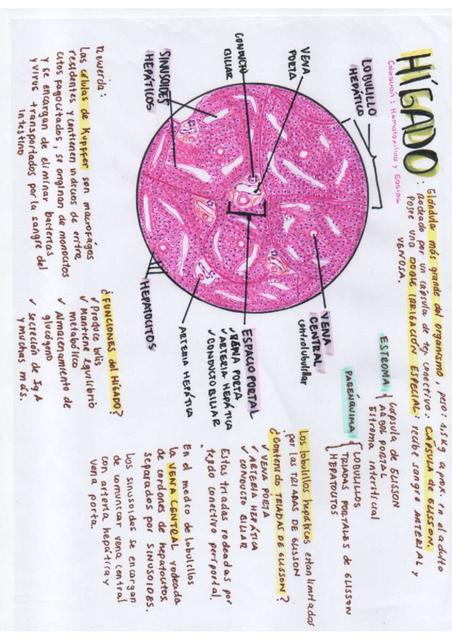 HÍGADO:
Coloración: Hematoxilina y Eosina
Glándula más grande del organismo, peso: 1.5Kg aprox. en el adulto
Rodeado por un cápsula de tej conectivo: CÁPSULA DE GLISSON.
Posee una DOBLE IRRIGACIÓN ESPECIAL: recibe sangre ARTERIAL y
VENOSA.
ESTROMA
Cápsula de GLISSON
ARBOL PORTAL
Estroma intersticial
PARÉNQUIMA
LOBULILLOS
TRIADAS PORTALES de GLISSON
HEPATOCITOS
LOBULILLO
HEPÁTICO
VENA
PORTA
CONDUCTO
BILIAR
SINUSOIDES
HEPÁTICOS
VENA
CENTRAL
Centrolobulillar
ESPACIO PORTAL
✓ VENA PORTA
✓ ARTERIA HEPÁTICA
✓ CONDUCTO BILIAR
ARTERIA HEPÁTICA
HEPATOCITOS
Los lobulillos hepáticos estan limitados
por las TRIADAS DE GLISSON
¿Contenido TRIADAS DE GLISSON?
✓ VENA PORTA
✓ ARTERIA HEPÁTICA
✓ CONDUCTO BILIAR
Estas triadas rodeadas por
tejido conectivo periportal.
En el medio de lobulillos
la VENA CENTRAL rodeada
de cordones de hepatocitos
separados por SINUSOIDES.
Los sinusoides se encargan
de comunicar vena central
con arteria hepática y
vena porta.
recuerda:
Las células de Kupffer son macrófagos
residentes y contienen indicios de eritro
citos fagocitados, se originan de monocitos
y se encargan de eliminar bacterias
y virus transportados por la sangre del
intestino
¿FUNCIONES del HÍGADO?
✓ Produce bilis
✓ Mantener equilibrio
metabólico
✓ Almacenamiento de
glucógeno
✓ secreción de IgA
y muchas más.